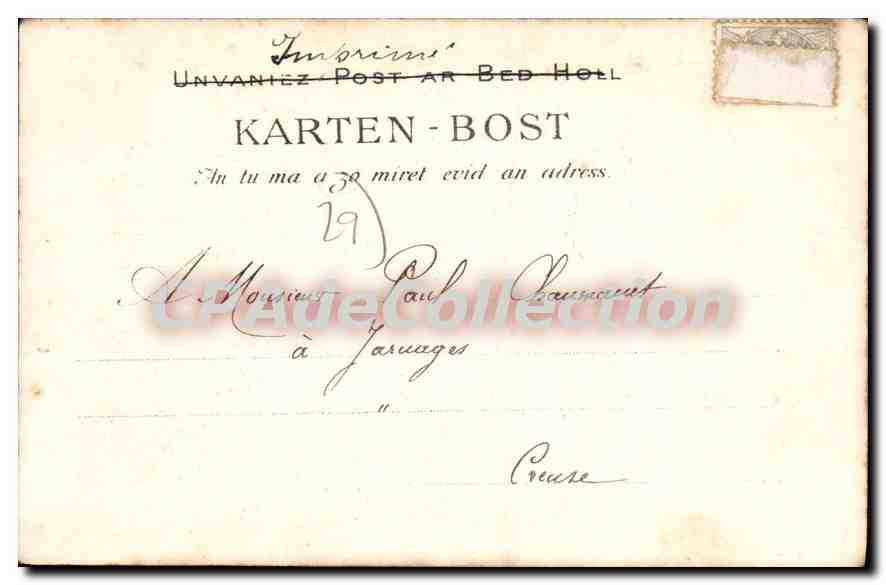 Imprimé
UNVANIEZ POST AR BED HOLL
KARTEN-BOST
An tu ma a zo miret evid an adress.
29)
A Monsieur Paul Chaumanet
CPAdeCollection
à Jarnages
"
Creuse